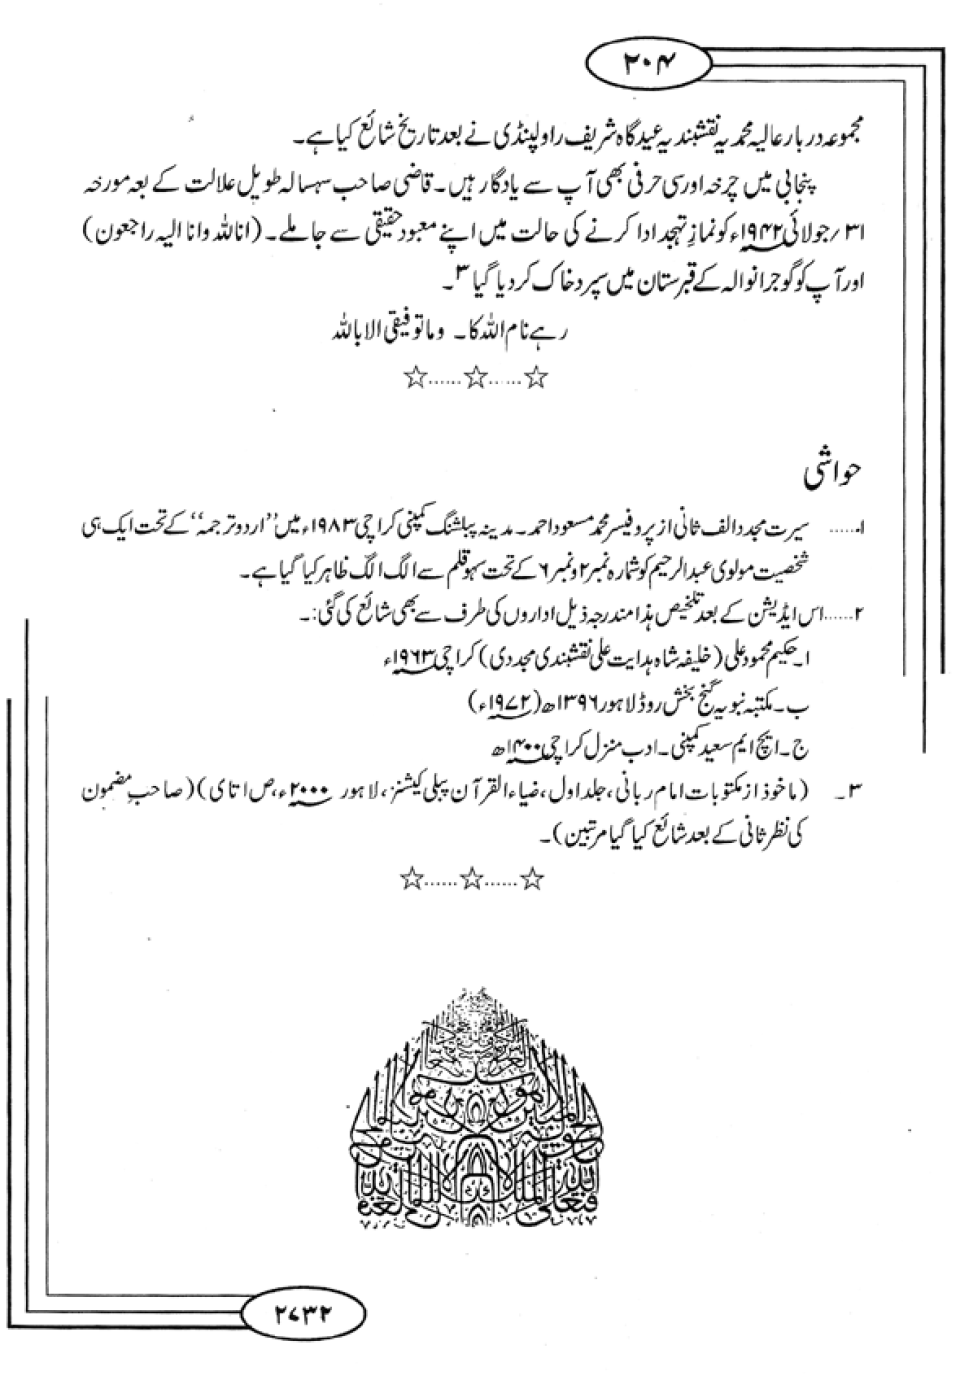 ۲۰۴
مجموعہ دربار عالیہ محمدیہ نقشبندیہ عیدگاہ شریف راولپنڈی نے بعد تاریخ شائع کیا ہے۔
پنجابی میں چرخہ اور سی حرفی بھی آپ سے یادگار ہیں۔ قاضی صاحب سہ سالہ طویل علالت کے بعہ مورخہ
۳۱/جولائی ۱۹۴۲ء کو نمازِ تہجد ادا کرنے کی حالت میں اپنے معبود حقیقی سے جا ملے۔ (انا للہ وانا الیہ راجعون)
اور آپ کو گوجرانوالہ کے قبرستان میں سپرد خاک کردیا گیا ۳۔
رہے نام اللہ کا۔ وما توفیقی الا باللہ
☆......☆......☆
حواشی
۱..... سیرت مجدد الف ثانی از پروفیسر محمد مسعود احمد۔ مدینہ پبلشنگ کمپنی کراچی ۱۹۸۳ء میں ”اردو ترجمہ“ کے تحت ایک ہی
شخصیت مولوی عبدالرحیم کو شمارہ نمبر ۲ و نمبر ۶ کے تحت سہو قلم سے الگ الگ ظاہر کیا گیا ہے۔
۲......اس ایڈیشن کے بعد تلخیص ہذا مندرجہ ذیل اداروں کی طرف سے بھی شائع کی گئی:۔
ا۔ حکیم محمود علی (خلیفہ شاہ ہدایت علی نقشبندی مجددی) کراچی ۱۹۶۳ء
ب۔ مکتبہ نبویہ گنج بخش روڈ لاہور ۱۳۹۶ھ (۱۹۷۲ء)
ج۔ ایچ ایم سعید کمپنی۔ ادب منزل کراچی ۱۴۰۰ھ
۳۔ (ماخوذ از مکتوبات امام ربانی، جلد اول، ضیاء القرآن پبلی کیشنز، لاہور ۲۰۰۰ء، ص ا تا ی) (صاحبِ مضمون
کی نظر ثانی کے بعد شائع کیا گیا مرتبین)۔
☆......☆......☆
۲۷۳۲